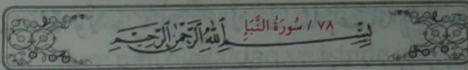 ٧٨ / سُورَةُ النَّبَإِ
بِسْمِ اللَّهِ الرَّحْمَٰنِ الرَّحِيمِ